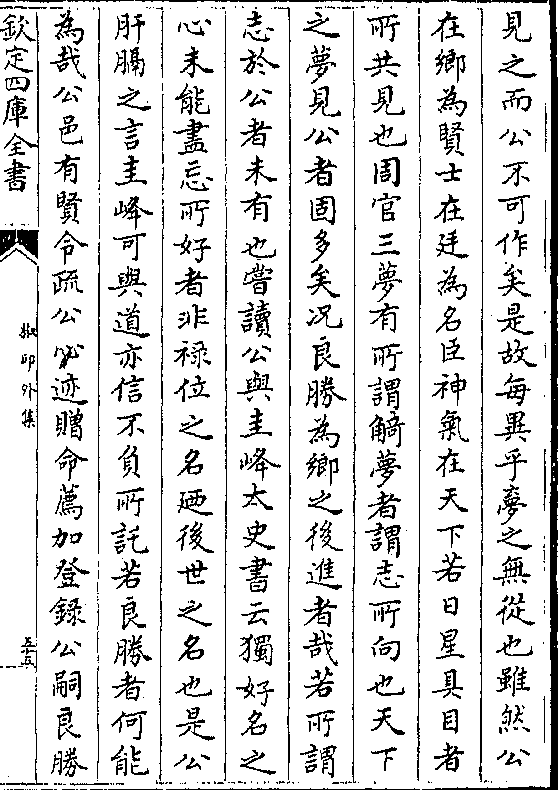 見之而公不可作矣是故每異乎夢之無從也雖然公
在鄉為賢士在廷為名臣神氣在天下若日星具目者
所共見也周官三夢有所謂觭夢者謂志所向也天下
之夢見公者固多矣况良勝為鄉之後進者哉若所謂
志於公者未有也嘗讀公與圭峰太史書云獨好名之
心未能盡忘所好者非禄位之名廼後世之名也是公
肝膈之言圭峰可與道亦信不負所託若良勝者何能
為哉公邑有賢令疏公必迹贈命薦加登錄公嗣良勝
欽定四庫全書
外集
五十五